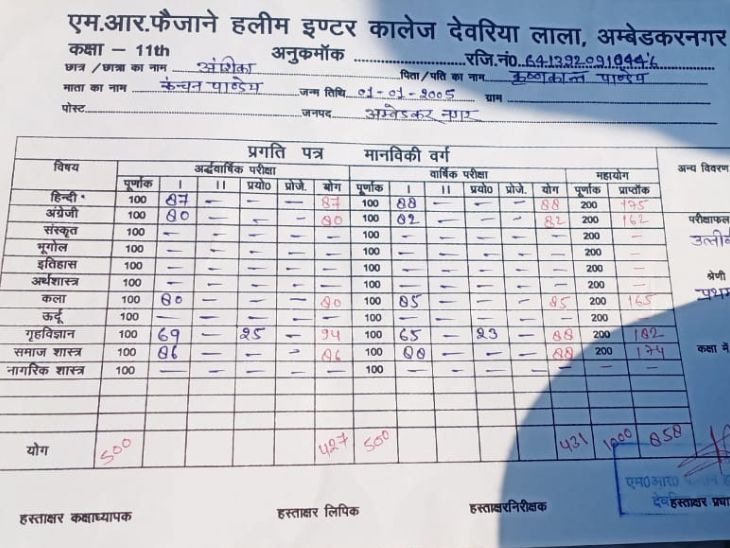 एम.आर.फैजाने हलीम इण्टर कालेज देवरिया लाला, अम्बेडकरनगर
कक्षा – 11th अनुक्रमाँक रजि.नं०
छात्र / छात्रा का नाम अंशिका पिता / पति का नाम कृष्णकान्त पाण्डेय
माता का नाम कंन्चन पाण्डेय जन्म तिथि 01-01-2005 ग्राम
पोस्ट जनपद अम्बेडकर नगर
प्रगति पत्र मानविकी वर्ग
विषय अर्द्धवार्षिक परीक्षा वार्षिक परीक्षा महायोग अन्य विवरण
पूर्णांक I II प्रयो0 प्रोजे. योग पूर्णांक I II प्रयो0 प्रोजे. योग पूर्णांक प्राप्ताँक
हिन्दी 100 87 – – – 87 100 88 – – – 88 200 175
अंग्रेजी 100 80 – – – 80 100 82 – – – 82 200 162 परीक्षाफल
संस्कृत 100 – – – – – 100 – – – – – 200 –
भूगोल 100 – – – – – 100 – – – – – 200 –
इतिहास 100 – – – – – 100 – – – – – 200 –
अर्थशास्त्र 100 – – – – – 100 – – – – – 200 – श्रेणी
कला 100 80 – – – 80 100 85 – – – 85 200 165 प्रथम
ऊर्दू 100 – – – – – 100 – – – – – 200 –
गृहविज्ञान 100 69 – 25 – 94 100 65 – 23 – 88 200 182
समाज शास्त्र 100 86 – – – 86 100 88 – – – 88 200 174 कक्षा में
नागरिक शास्त्र 100 – – – – – 100 – – – – –
योग 500 427 500 431 1000 858
एम0आर0
हस्ताक्षर कक्षाध्यापक हस्ताक्षर लिपिक हस्ताक्षरनिरीक्षक हस्ताक्षर